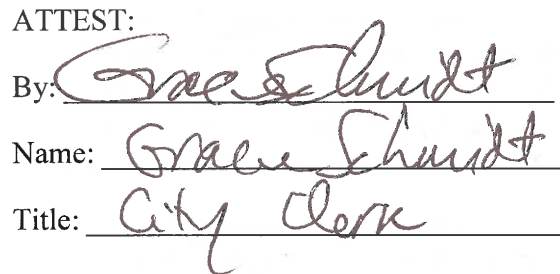 ATTEST:
By: Grace Schmidt
Name: Grace Schmidt
Title: City Clerk